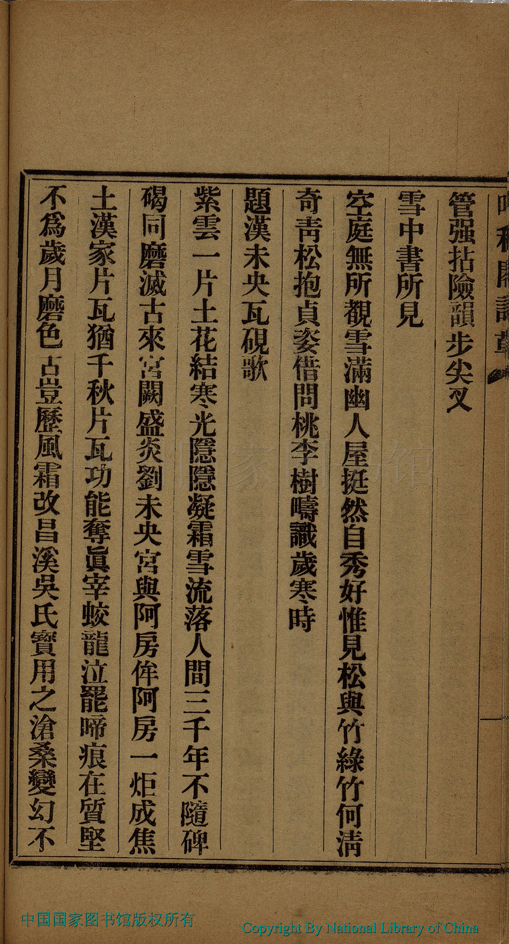 管强拈險韻步尖叉
雪中書所見
空庭無所觀雪滿幽人屋挺然自秀好惟見松與竹綠竹何淸
奇靑松抱貞姿借問桃李樹疇識歲寒時
題漢未央瓦硯歌
紫雲一片土花結寒光隱隱凝霜雪流落人間三千年不隨碑
碣同磨滅古來宮闕盛炎劉未央宮與阿房侔阿房一炬成焦
土漢家片瓦猶千秋片瓦功能奪眞宰蛟龍泣罷啼痕在質堅
不爲歲月磨色古豈歷風霜改昌溪吳氏寶用之滄桑變幻不
中国国家图书馆版权所有
Copyright By National Library of China